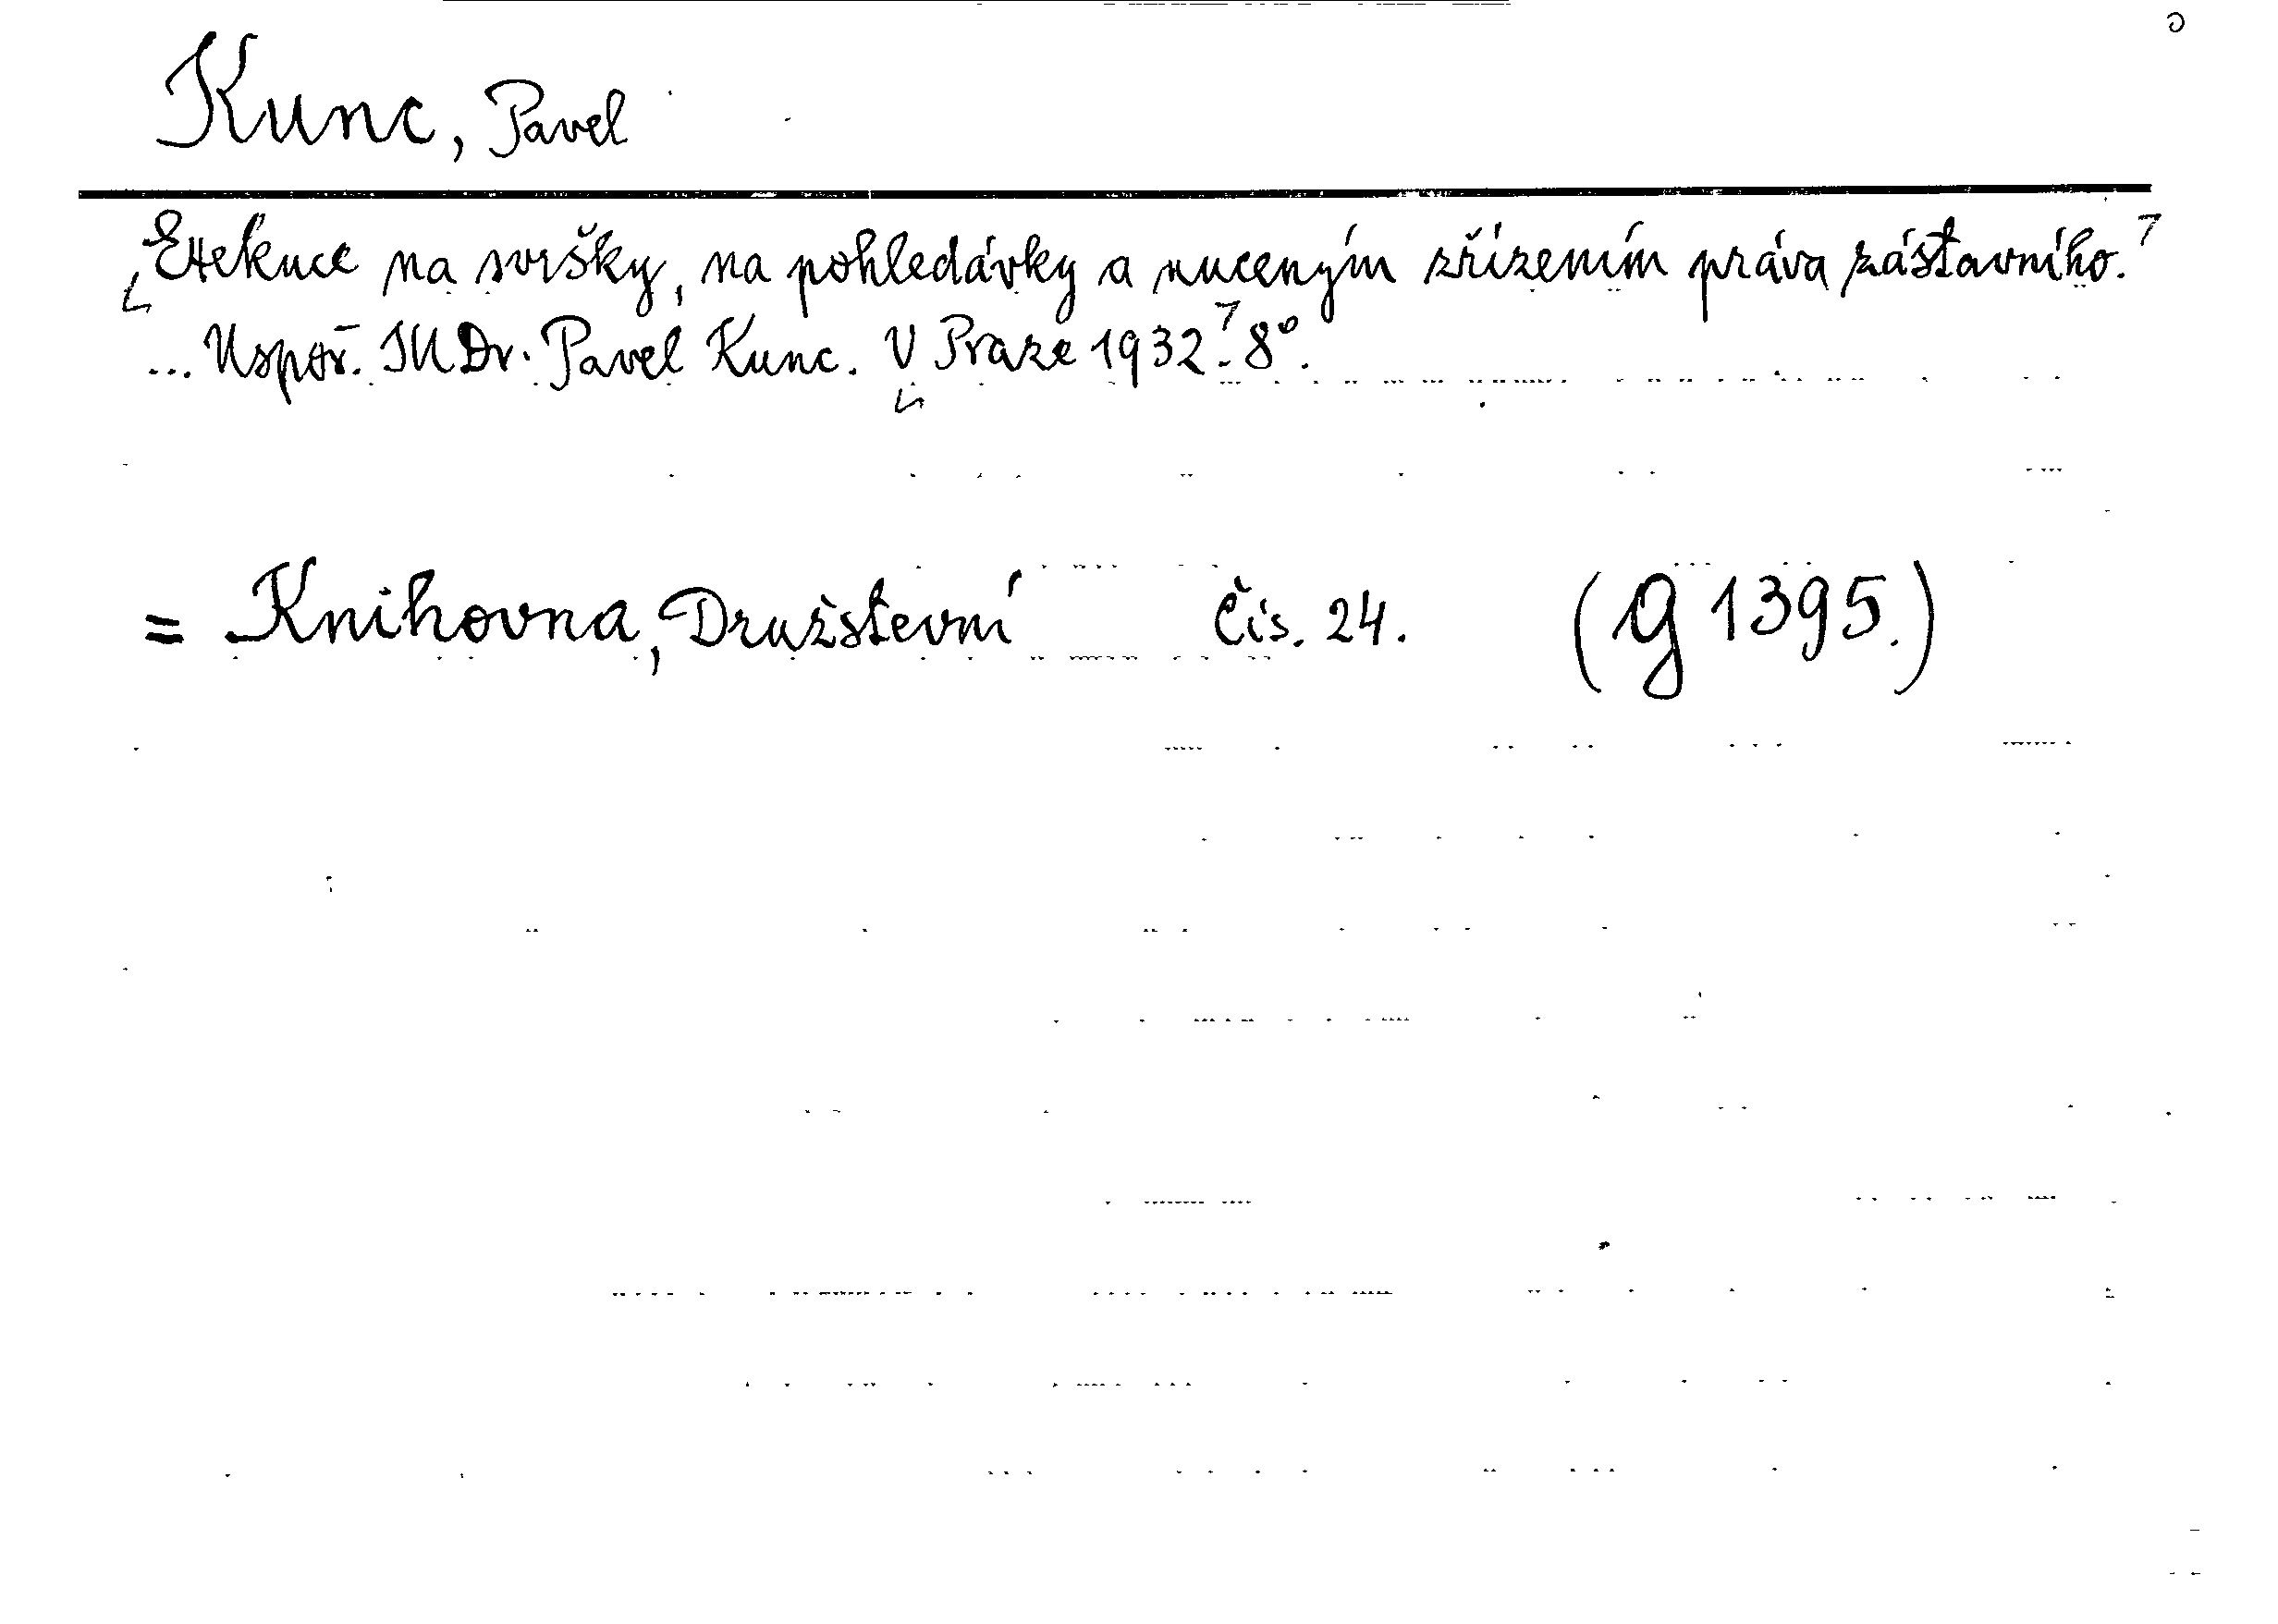 Kunc, Pavel
Exekuce na svršky, na pohledávky a nuceným zřízením práva zástavního.
... Uspoř. JUDr. Pavel Kunc. V Praze 1932. 8°.
= Knihovna, Družstevní Čís. 24. (g 1395.)